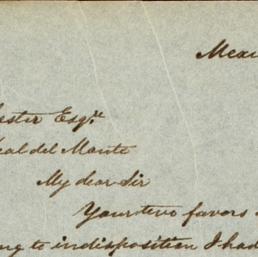 Mexi
ester Esqr.
eal del Monte
My dear Sir
Your two favors
ng to indisposition I had